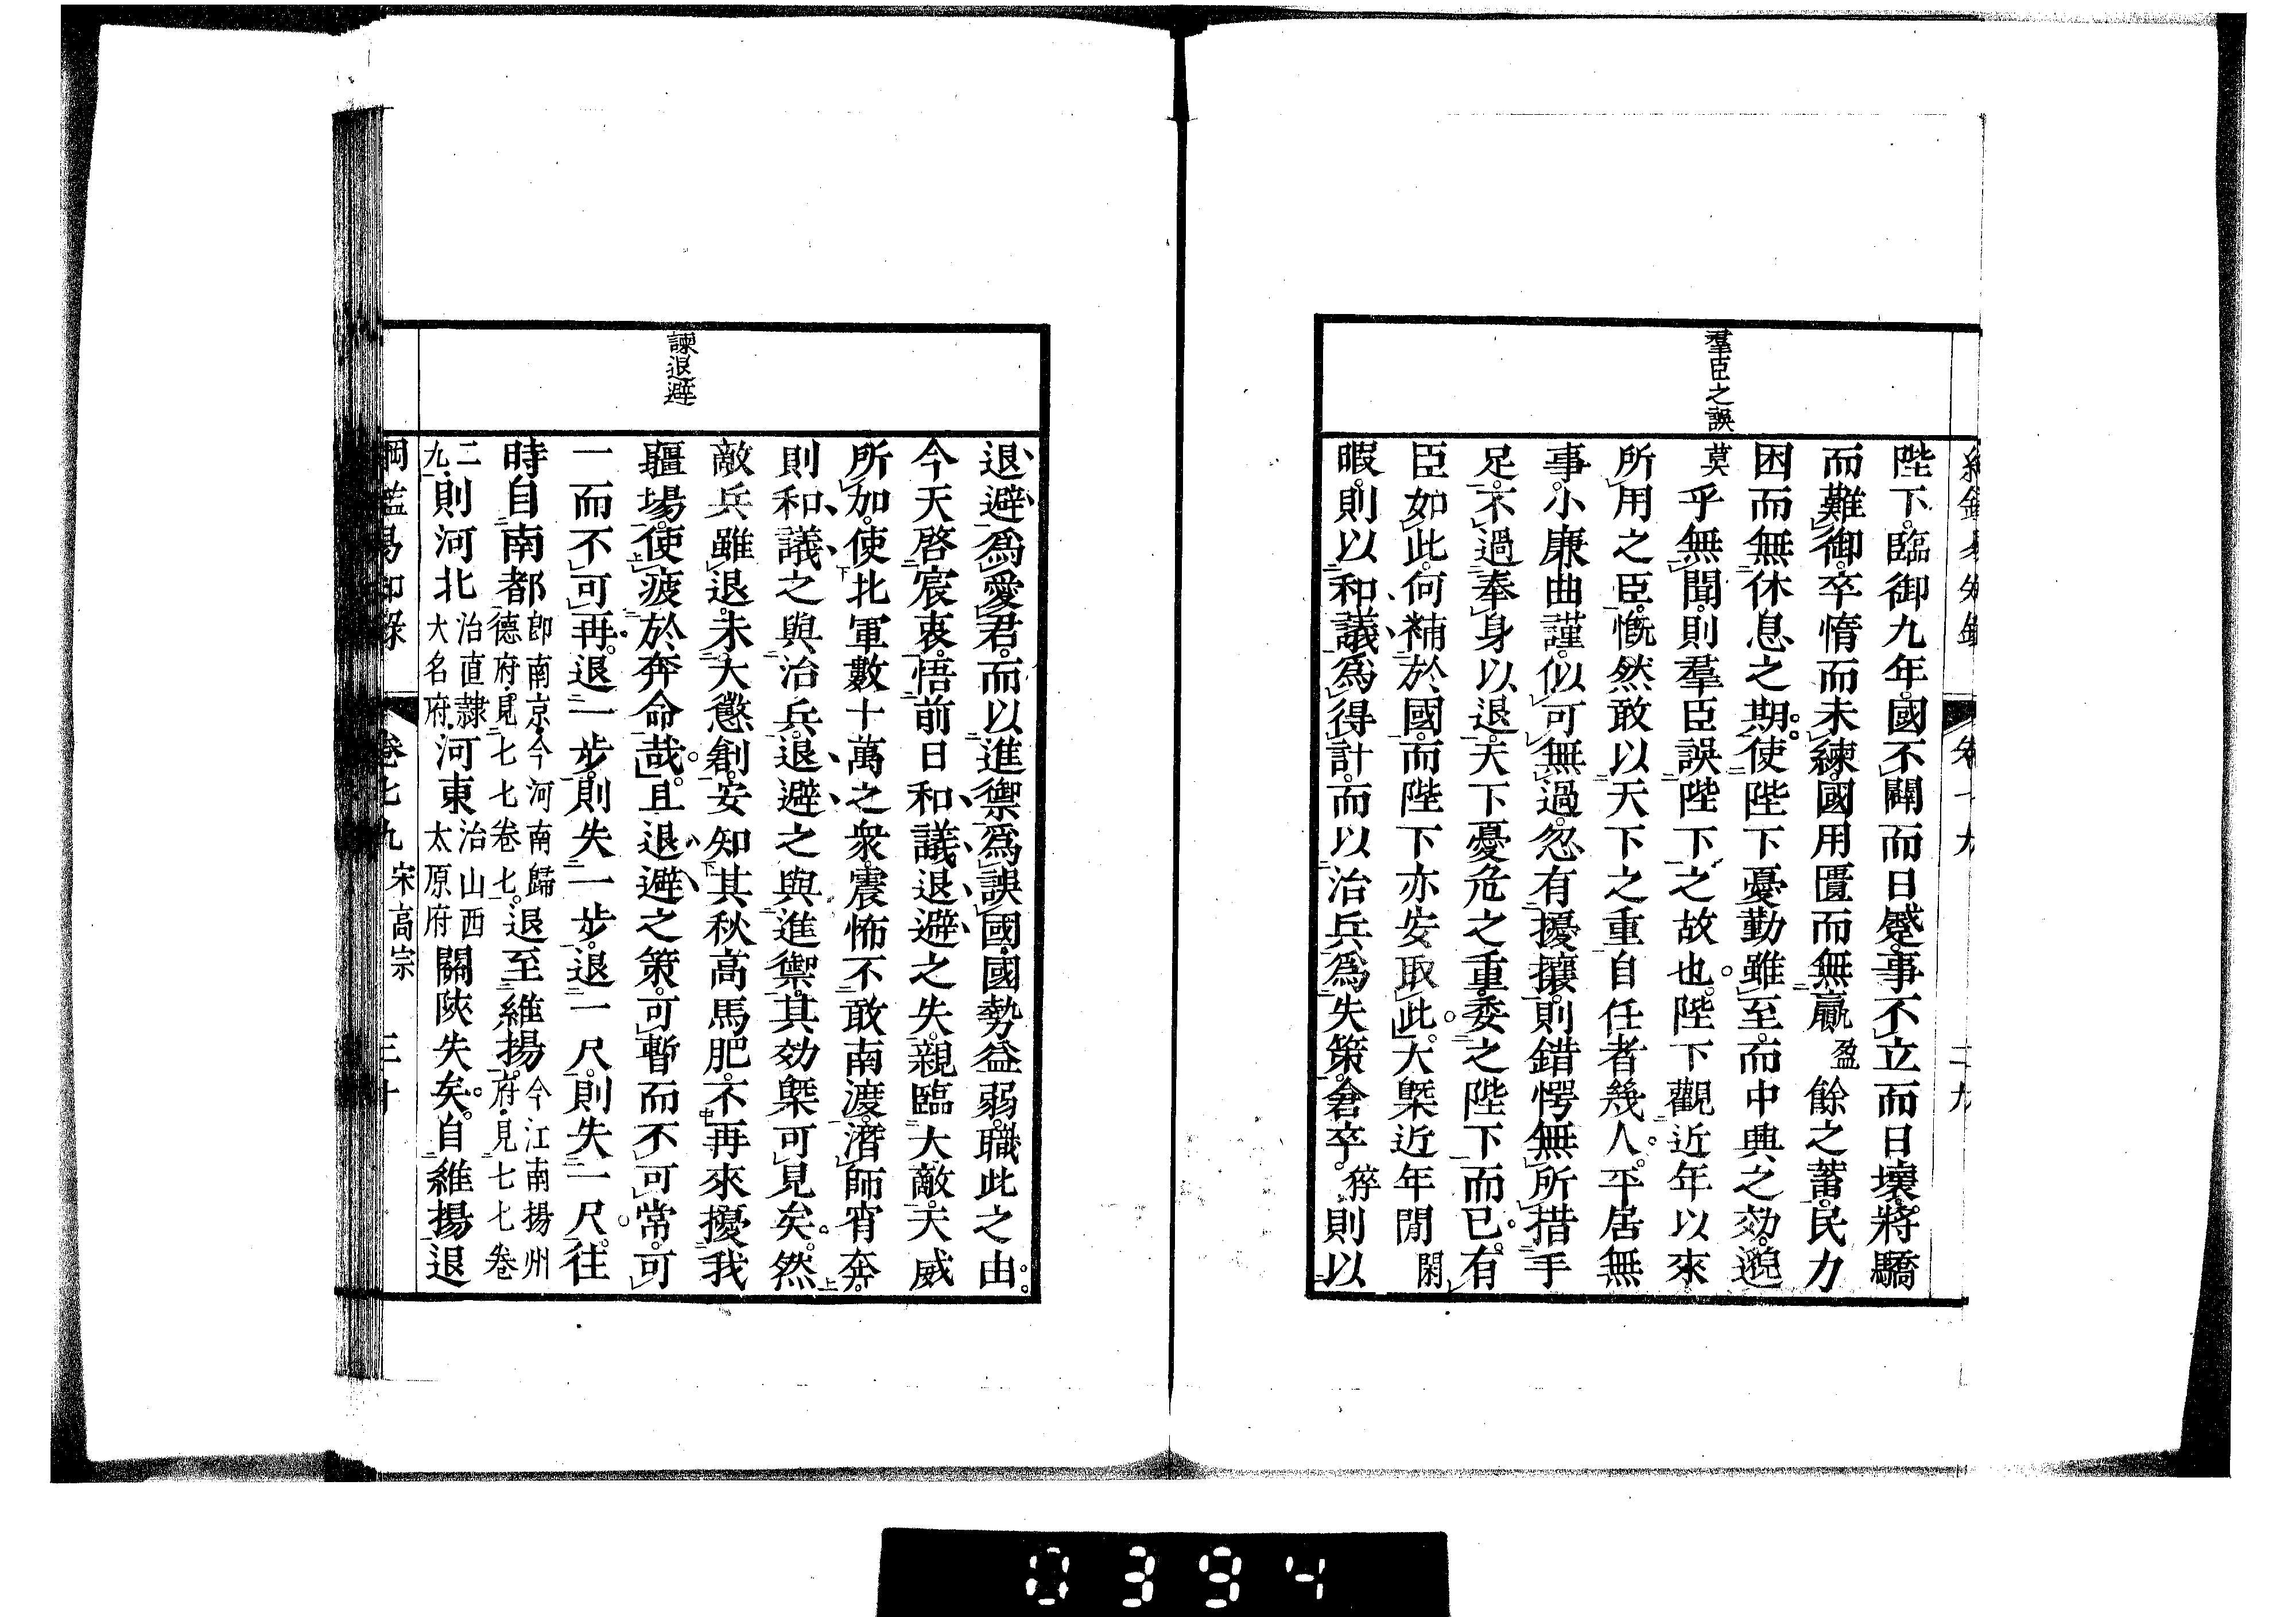 羣臣之誤
陛下。臨御九年。國不闢而日蹙。事不立而日壞。將驕
而難御。卒惰而未練。國用匱而無贏盈餘之蓄。民力
困而無休息之期。使陛下憂勤雖至。而中興之効。邈
莫乎無聞。則羣臣誤陛下之故也。陛下觀近年以來
所用之臣。慨然敢以天下之重自任者幾人。平居無
事。小廉曲謹。似可無過。忽有擾攘。則錯愕無所措手
足。不過奉身以退。天下憂危之重。委之陛下而已。有
臣如此。何補於國。而陛下亦安取此。大槩近年閒閑
暇。則以和議爲得計。而以治兵爲失策。倉卒。猝則以
諫退避
退避爲愛君。而以進禦爲誤國。國勢益弱。職此之由。
今天啓宸衷。悟前日和議退避之失。親臨大敵。天威
所加。使北軍數十萬之衆。震怖不敢南渡。潛師宵奔。
則和議之與治兵。退避之與進禦。其効槩可見矣。然
敵兵雖退。未大懲創。安知其秋高馬肥。不再來擾我
疆場。使疲於奔命哉。且退避之策。可暫而不可常。可
一而不可再。退一步。則失一步。退一尺。則失一尺。往
時自南都即南京。今河南歸德府。見七七卷七。退至維揚。今江南揚州府。見七七卷
二九。則河北治直隷大名府。河東治山西太原府關陝失矣。自維揚退
綱鑑易知錄 卷七九 宋高宗 三十